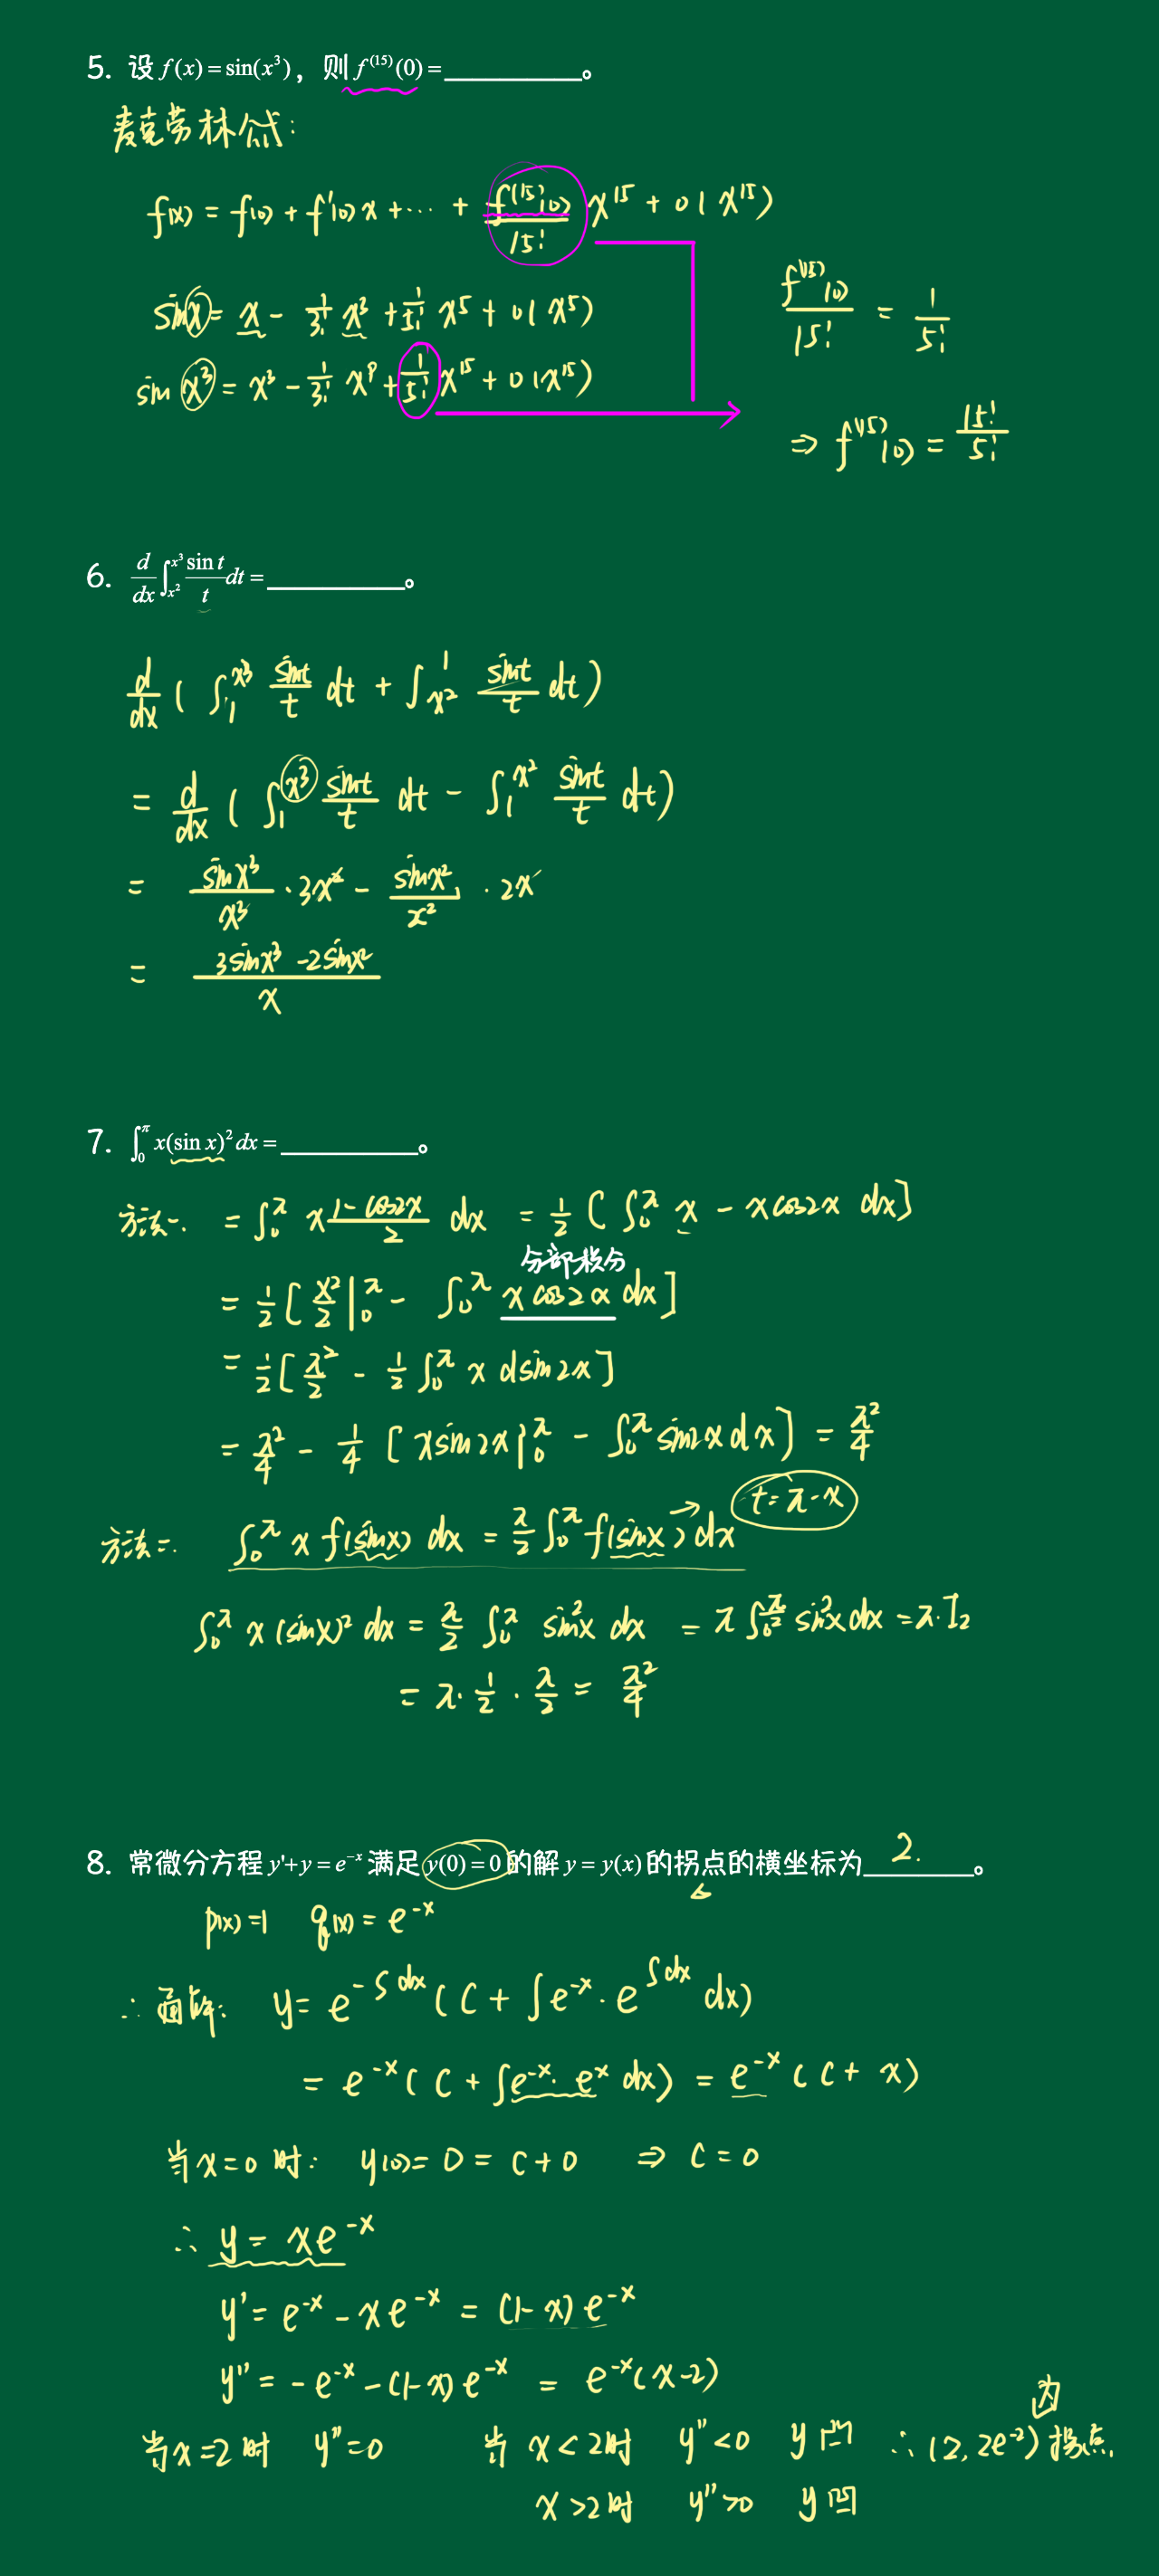 5. 设 f(x) = sin(x³)，则 f⁽¹⁵⁾(0) = ________。
麦克劳林公式:
f(x) = f(0) + f'(0)x + ⋯ + f⁽¹⁵⁾(0)/15! x¹⁵ + o(x¹⁵)
sin x = x - 1/3! x³ + 1/5! x⁵ + o(x⁵)
sin x³ = x³ - 1/3! x⁹ + 1/5! x¹⁵ + o(x¹⁵)
f⁽¹⁵⁾(0)/15! = 1/5!
⇒ f⁽¹⁵⁾(0) = 15!/5!
6. d/dx ∫_{x²}^{x³} sin t/t dt = ________。
d/dx ( ∫_1^{x³} sint/t dt + ∫_{x²}^1 sint/t dt )
= d/dx ( ∫_1^{x³} sint/t dt - ∫_1^{x²} sint/t dt )
= sinx³/x³ · 3x² - sinx²/x² · 2x
= (3sinx³ - 2sinx²)/x
7. ∫_0^π x(sin x)² dx = ________。
方法一. = ∫_0^π x (1-cos2x)/2 dx = 1/2 [ ∫_0^π x - xcos2x dx ]
分部积分
= 1/2 [ x²/2 |_0^π - ∫_0^π x cos2x dx ]
= 1/2 [ π²/2 - 1/2 ∫_0^π x dsin2x ]
= π²/4 - 1/4 [ xsin2x |_0^π - ∫_0^π sin2x dx ] = π²/4
t = π - x
方法二. ∫_0^π x f(sinx) dx = π/2 ∫_0^π f(sinx) dx
∫_0^π x (sinx)² dx = π/2 ∫_0^π sin²x dx = π ∫_0^{π/2} sin²x dx = π·I₂
= π · 1/2 · π/2 = π²/4
8. 常微分方程 y'+y = e⁻ˣ 满足 y(0) = 0 的解 y = y(x) 的拐点的横坐标为 2. 。
p(x) = 1 q(x) = e⁻ˣ
∴ 通解: y = e^{-∫dx} ( C + ∫e⁻ˣ · e^{∫dx} dx )
= e⁻ˣ ( C + ∫e⁻ˣ · eˣ dx ) = e⁻ˣ ( C + x )
当 x = 0 时: y(0) = 0 = C + 0 ⇒ C = 0
∴ y = xe⁻ˣ
y' = e⁻ˣ - xe⁻ˣ = (1-x) e⁻ˣ
y'' = -e⁻ˣ - (1-x) e⁻ˣ = e⁻ˣ(x-2)
当 x = 2 时 y'' = 0 当 x < 2 时 y'' < 0 y 凸 ∴ (2, 2e⁻²) 为 拐点.
x > 2 时 y'' > 0 y 凹